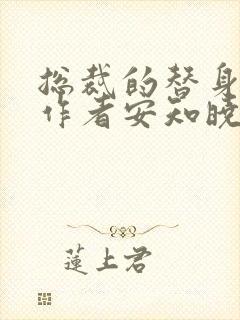 总裁的替身
作者安知晚
蓮上君